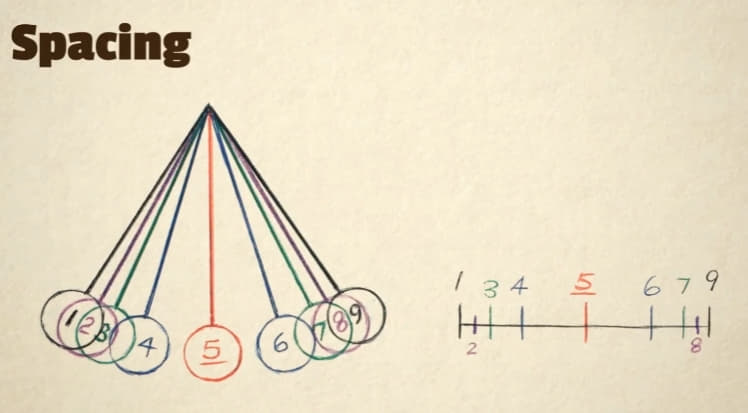 Spacing
1 2 3 4 5 6 7 8 9
1 3 4 5 6 7 9
2 8